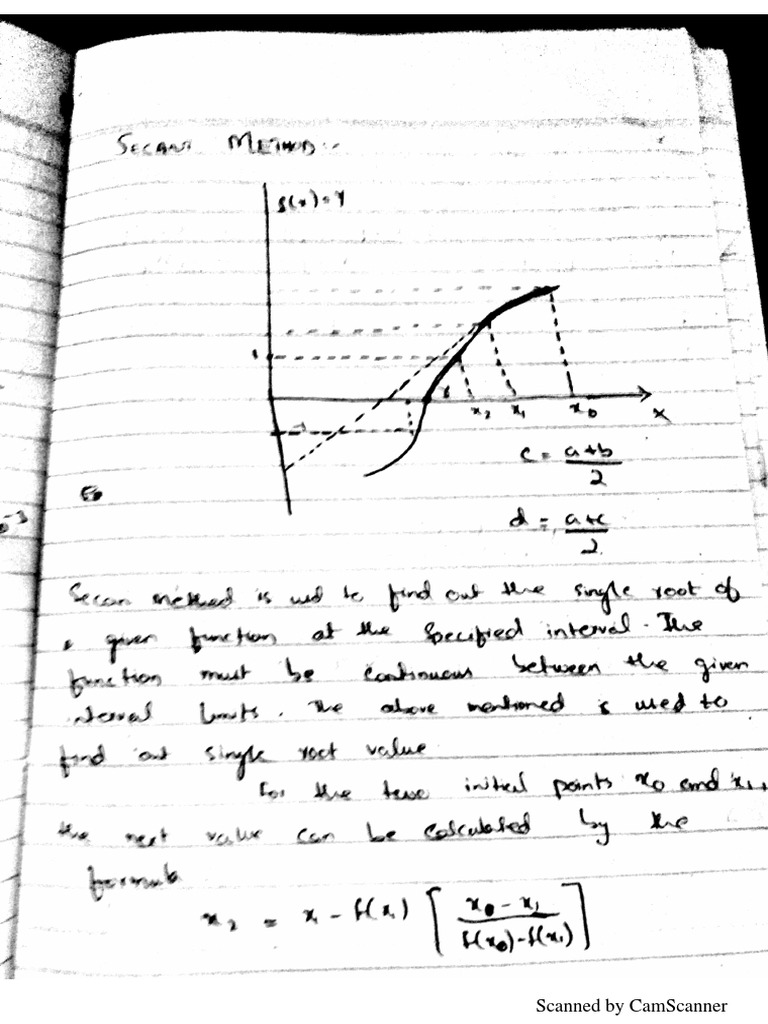 SECANT METHOD :-
f(x) = y
x2 x1 x0 x
c = a+b / 2
d = a+c / 2
Secan method is usd to find out the single root of
a given function at the specified interval. The
function must be continuous between the given
interval limits. The above mentioned is used to
find out single root value
For the two initial points x0 and x1,
the next value can be calculated by the
formula
x2 = x1 - f(x1) [ x0 - x1 / f(x0) - f(x1) ]
Scanned by CamScanner